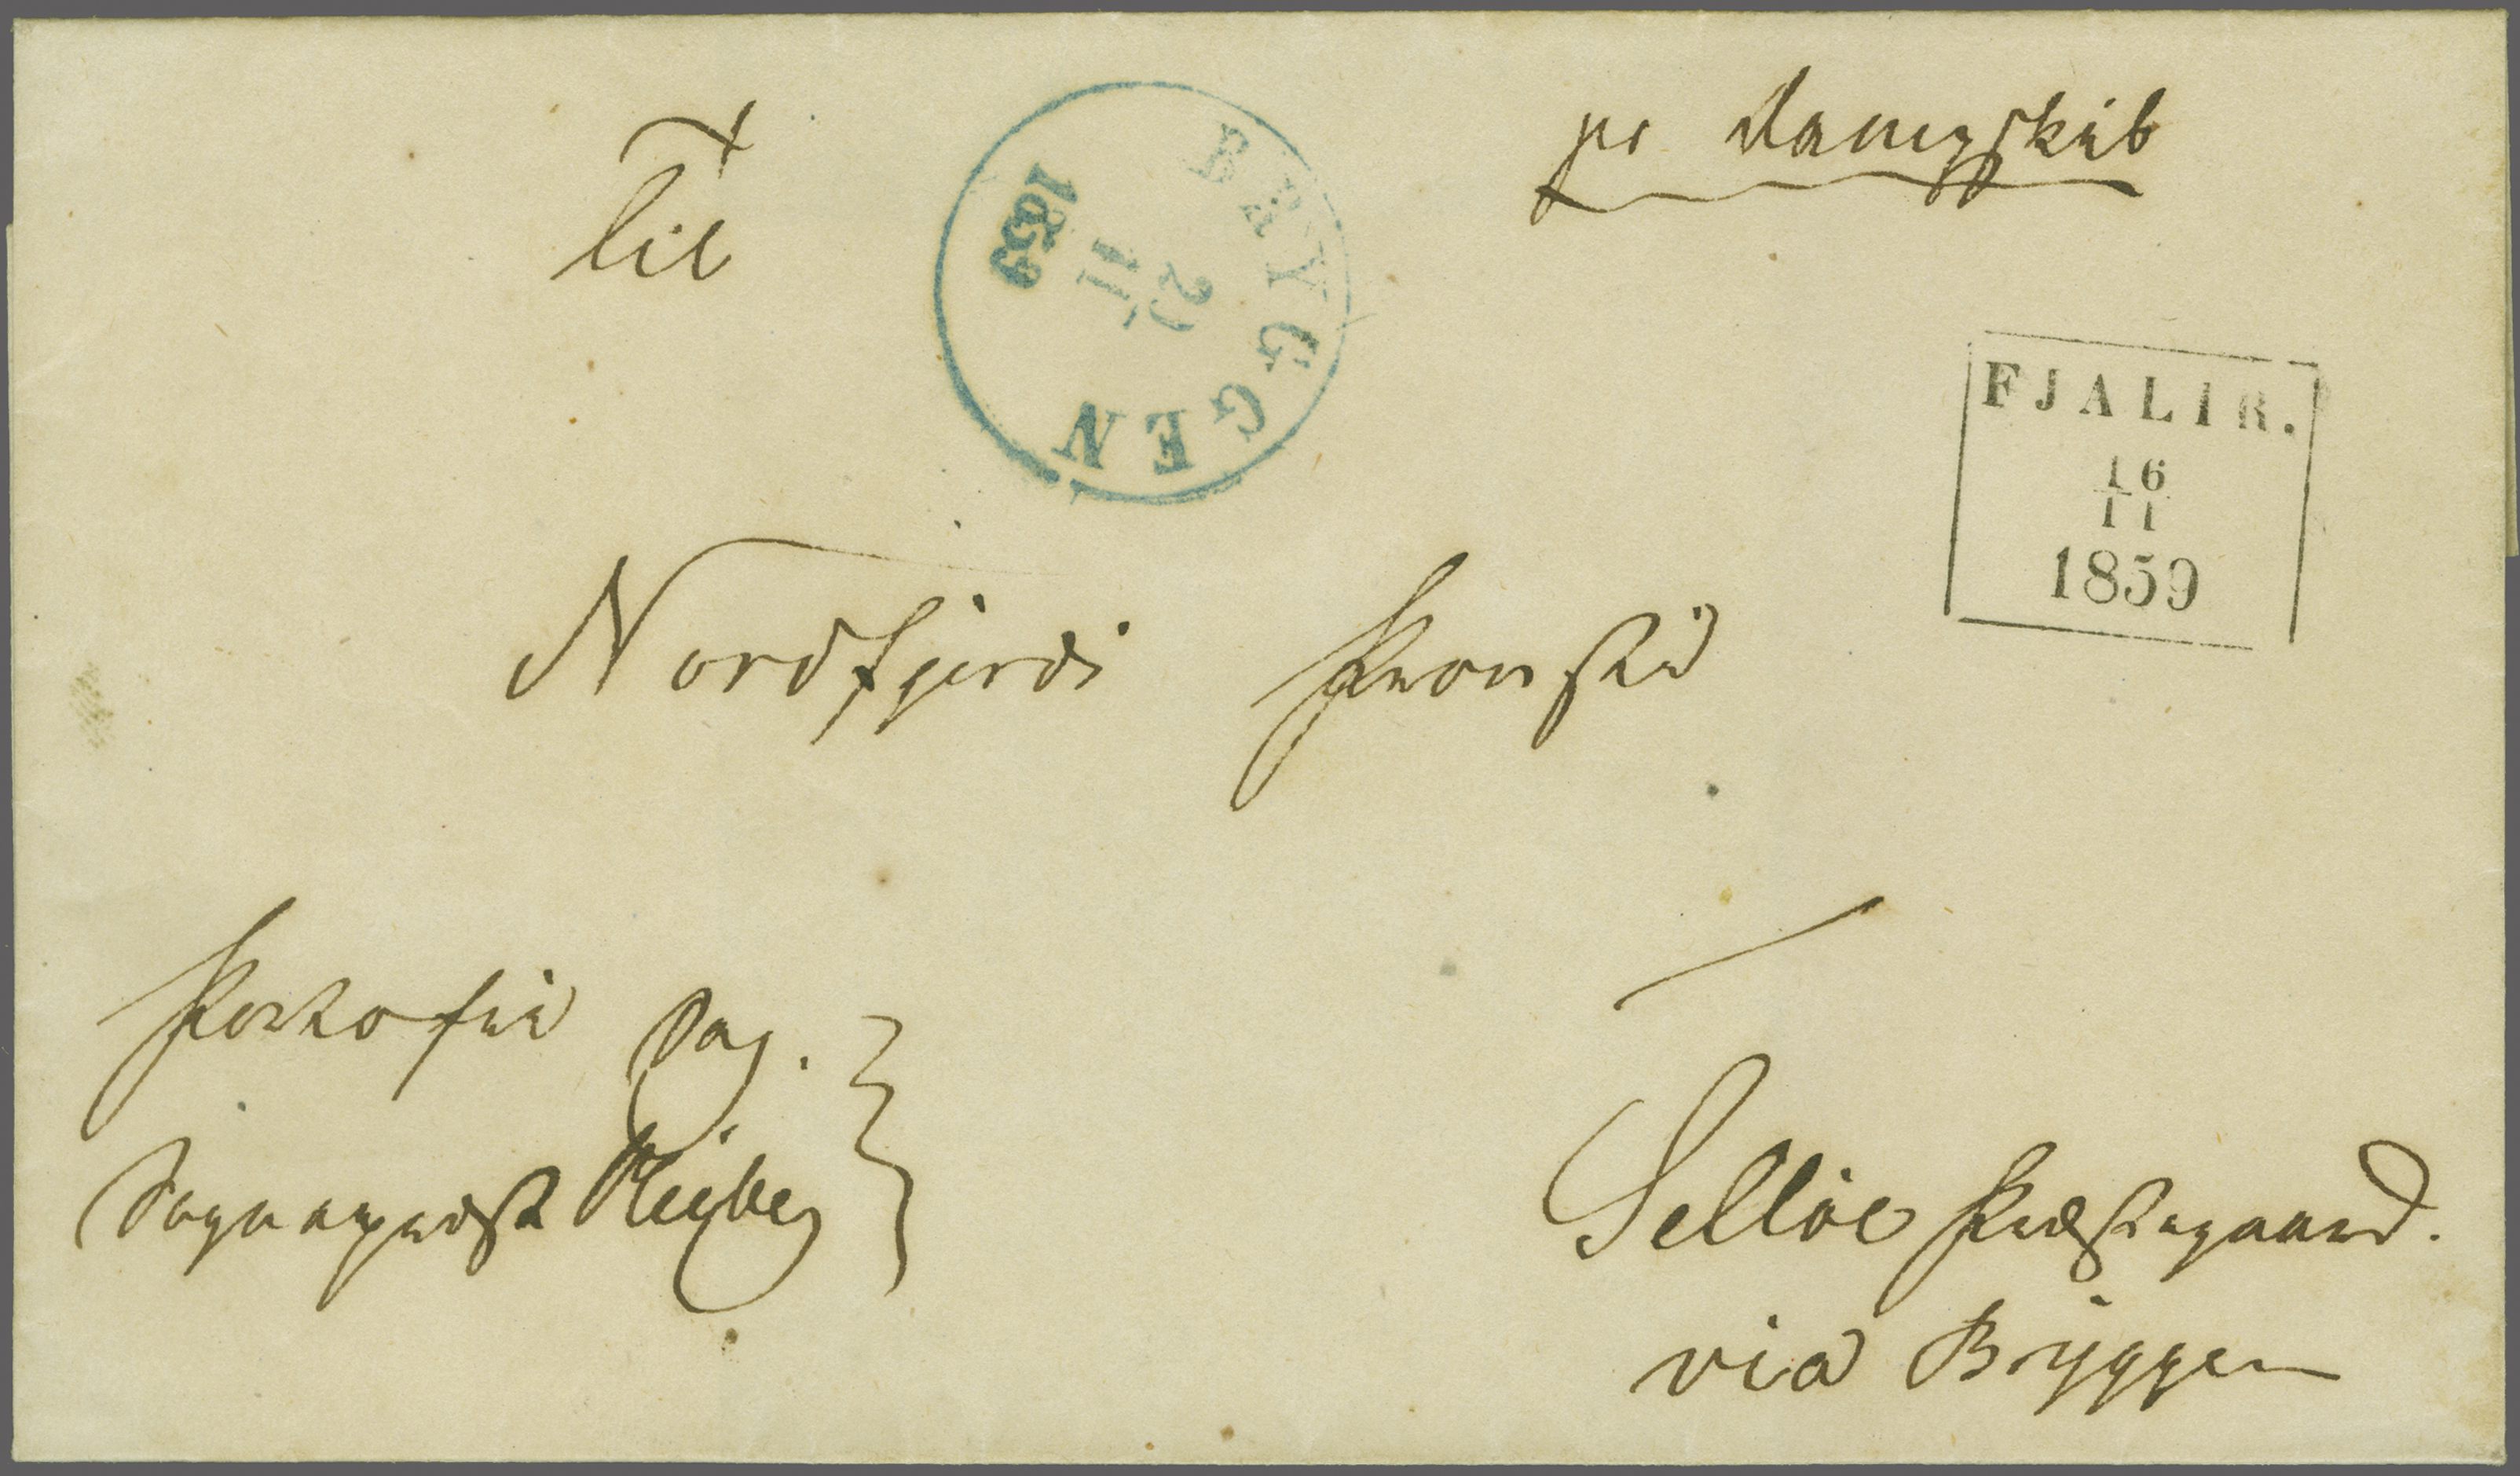 pr Dampskib
Til
BRYGGEN
21
11
1859
FJALIR.
16
11
1859
Nordfjords Provstie
Portofrie Sag.
Sognepræst
Selløe Præstegaard.
via Bryggen